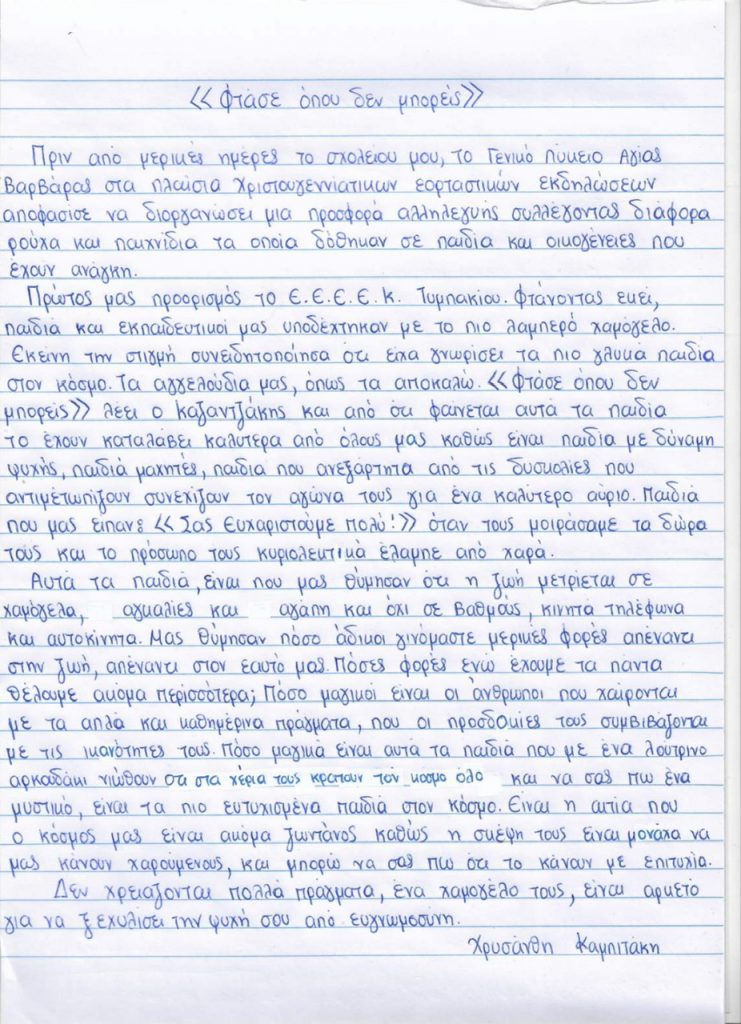 << Φτάσε όπου δεν μπορείς >>
Πριν από μερικές ημέρες το σχολείου μου, το Γενικό Λύκειο Αγίας
Βαρβάρας στα πλαίσια Χριστουγεννιατικων εορταστικών εκδηλώσεων
αποφάσισε να διοργανώσει μια προσφορά αλληλεγγύης συλλέγοντας διάφορα
ρούχα και παιχνίδια τα οποία δόθηκαν σε παιδία και οικογένειες που
έχουν ανάγκη.
Πρώτος μας προορισμός το Ε.Ε.Ε.Ε.Κ. Τυμπακίου. Φτάνοντας εκεί,
παιδία και εκπαιδευτικοί μας υποδέχτηκαν με το πιο λαμπερό χαμόγελο.
Εκείνη την στιγμή συνειδητοποίησα ότι είχα γνωρίσει τα πιο γλυκά παιδία
στον κόσμο. Τα αγγελούδια μας, όπως τα αποκαλώ. << Φτάσε όπου δεν
μπορείς >> λέει ο Καζαντζάκης και από ότι φαίνεται αυτά τα παιδία
το έχουν καταλάβει καλύτερα από όλους μας καθώς είναι παιδία με δύναμη
ψυχής, παιδιά μαχητές, παιδία που ανεξάρτητα από τις δυσκολίες που
αντιμετωπίζουν συνεχίζουν τον αγώνα τους για ένα καλύτερο αύριο. Παιδιά
που μας είπανε << Σας Ευχαριστούμε πολύ! >> όταν τους μοιράσαμε τα δώρα
τους και το πρόσωπο τους κυριολεκτικά έλαμπε από χαρά.
Αυτά τα παιδιά, είναι που μας θύμησαν ότι η ζωή μετρίεται σε
χαμόγελα, αγκαλιές και αγάπη και όχι σε βαθμούς, κινητά τηλέφωνα
και αυτοκίνητα. Μας θύμησαν πόσο άδικοι γινόμαστε μερικές φορές απέναντι
στην ζωή, απέναντι στον εαυτό μας. Πόσες φορές ενώ έχουμε τα πάντα
θέλουμε ακόμα περισσότερα; Πόσο μαγικοί είναι οι άνθρωποι που χαίρονται
με τα απλά και καθημερινα πράγματα, που οι προσδοκίες τους συμβιβάζονται
με τις ικανότητες τους. Πόσο μαγικά είναι αυτά τα παιδιά που με ένα λούτρινο
αρκουδάκι νιώθουν οτι στα χέρια τους κρατουν τον κοσμο όλο και να σας πω ένα
μυστικό, είναι τα πιο ευτυχισμένα παιδιά στον κόσμο. Είναι η αιτία που
ο κόσμος μας είναι ακόμα ζωντανος καθώς η σκέψη τους είναι μονάχα να
μας κάνουν χαρούμενους, και μπορώ να σας πω ότι το κάνουν με επιτυχία.
Δεν χρειάζονται πολλά πράγματα, ένα χαμόγελό τους, είναι αρκετό
για να ξεχυλίσει την ψυχή σου από ευγνωμοσύνη.
Χρυσάνθη Καμπιτάκη